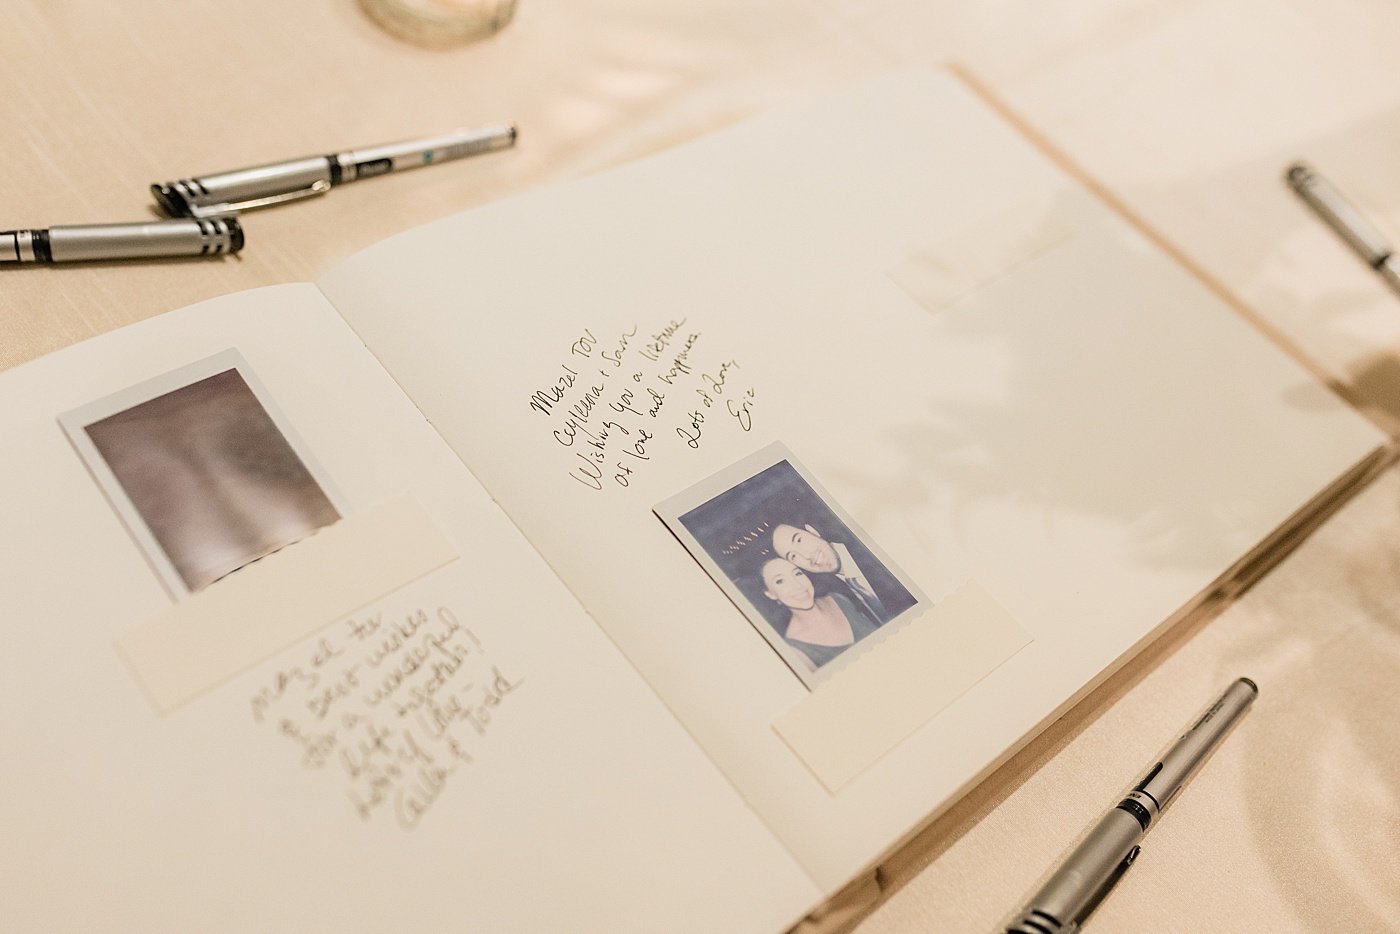 mazel tov
& best wishes
for a wonderful
life together!
lots of love -
& Todd
Mazel Tov
Cayleena + Sam
Wishing you a lifetime
of love and happiness.
Lots of Love,
Eric